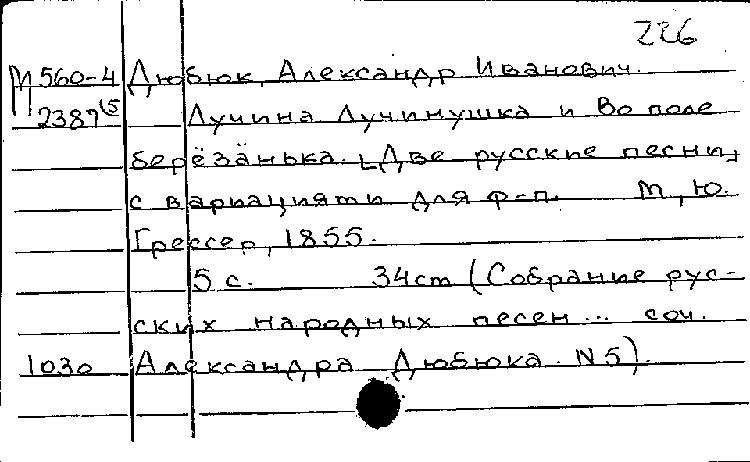 226
М 560-4 Дюбюк, Александр Иванович.
2387(5 Лучина Лучинушка и Во поле
берёзанька. [Две русские песни,
с вариациями для ф-п. М, Ю.
Грессер, 1855.
5 с. 34 cm (Собрание рус-
ских народных песен... соч.
1030 Александра Дюбюка. N 5).